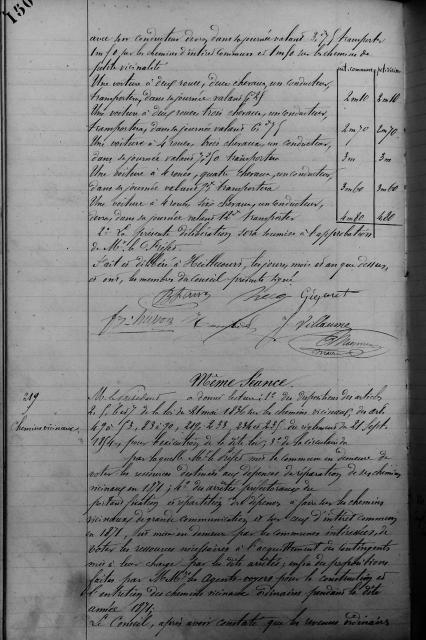 150
avec son conducteur devra dans sa journée valant 3,75 transporter
1m50 par les chemins d'intérêt commun et 1m50 sur les chemins de
petite vicinalité
Une voiture à deux roues, deux chevaux, un conducteur,
transportera, dans sa journée valant 5f25 2m10 2m10
Une voiture à deux roues trois chevaux, un conducteur,
transportera, dans sa journée valant 6f75 2m70 2m70
Une voiture à 4 roues, trois chevaux, un conducteur,
dans sa journée valant 7,50 transportera 3m 3m
Une voiture à 4 roues, quatre chevaux, un conducteur,
dans sa journée valant 9f transportera 3m60 3m60
Une voiture à 4 roues six chevaux, un conducteur,
devra, dans sa journée valant 12f transporter 4m80 4,80
2° La présente délibération sera soumise à l'approbation
de Mr le Préfet.
Fait et délibéré à les jours, mois et an que dessus,
et ont, les membres du Conseil présents signé
Gégout
J Villaume
Même Séance.
219
Chemins vicinaux
M. le Président a donné lecture: 1° des dispositions des articles
2, 5, 6 et 7 de la loi du 21 mai 1836 sur les chemins vicinaux, des arts
du règlement du 21 Sept.
1854, pour l'exécution de la dite loi; 3° de la circulaire du
par laquelle Mr le Préfet met la commune en demeure de
voter les ressources destinées aux dépenses de réparation de ses chemins
vicinaux en 1871; 4° des arrêtés préfectoraux du
portant fixation et répartition des dépenses à faire sur les chemins
vicinaux de grande communication et sur ceux d'intérêt commun
en 1871, mise en demeure par les communes intéressées, de
voter les ressources nécessaires à l'acquittement des contingents
mis à leur charge par les dits arrêtés; enfin des propositions
faites par MM. les Agents-voyers pour la construction et
l'entretien des chemins vicinaux ordinaires pendant la dite
année 1871;
Le Conseil, après avoir constaté que les revenus ordinaires